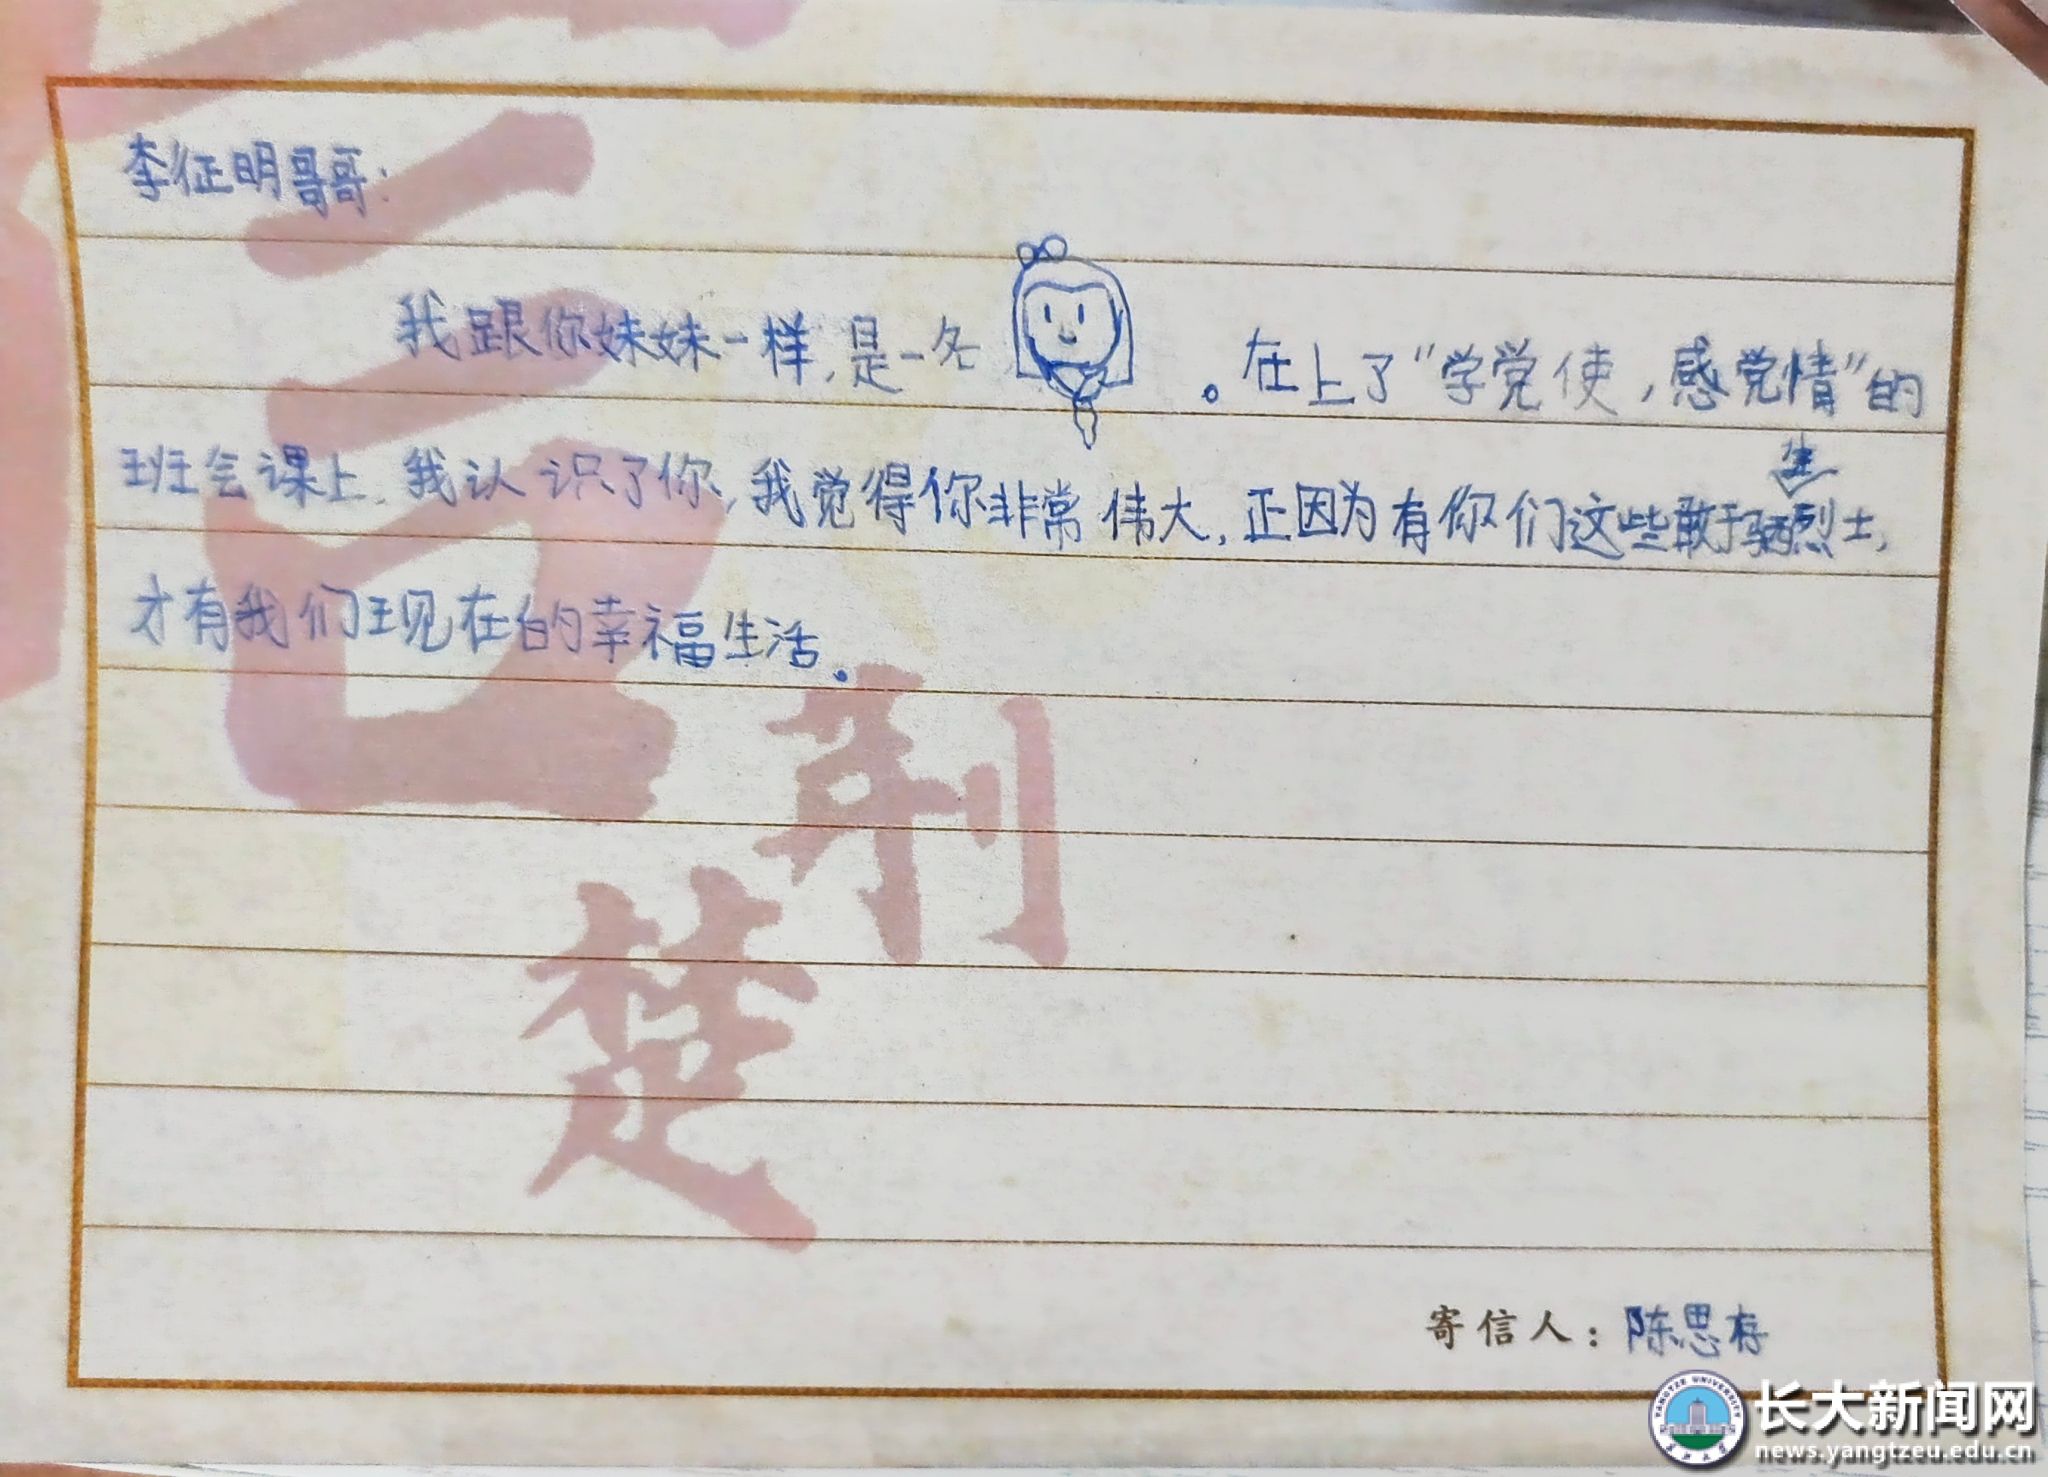 李征明哥哥：
我跟你妹妹一样，是一名。在上了“学党使，感党情”的
班会课上，我认识了你，我觉得你非常伟大，正因为有你们这些敢于牺牲烈士，
才有我们现在的幸福生活。
荆
楚
寄信人：陈思存
长大新闻网
news.yangtzeu.edu.cn
YANGTZE UNIVERSITY